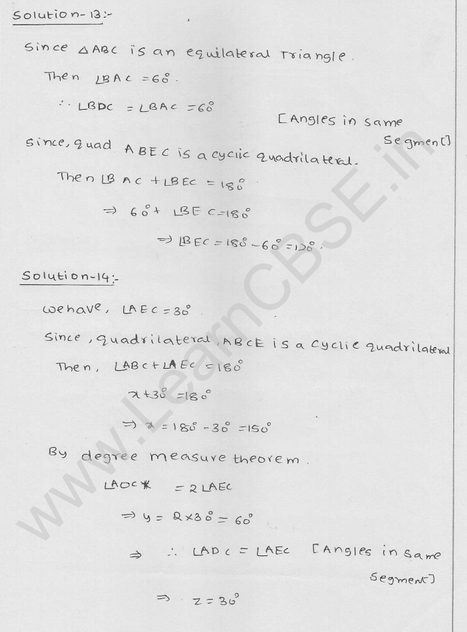 Solution-13:-
Since △ABC is an equilateral Triangle.
Then ∠BAC = 60°.
∴ ∠BDC = ∠BAC = 60°
[Angles in same
Segment]
Since, quad ABEC is a cyclic quadrilateral.
Then ∠BAC + ∠BEC = 180°
⇒ 60° + ∠BEC = 180°
⇒ ∠BEC = 180° - 60° = 120°.
Solution-14:-
we have, ∠AEC = 30°
Since, quadrilateral, ABCE is a cyclic quadrilateral
Then, ∠ABC + ∠AEC = 180°
x + 30° = 180°
⇒ x = 180° - 30° = 150°
By degree measure theorem.
∠AOC = 2∠AEC
⇒ y = 2×30° = 60°
⇒ ∴ ∠ADC = ∠AEC [Angles in same
segment]
⇒ z = 30°
www.LearnCBSE.in